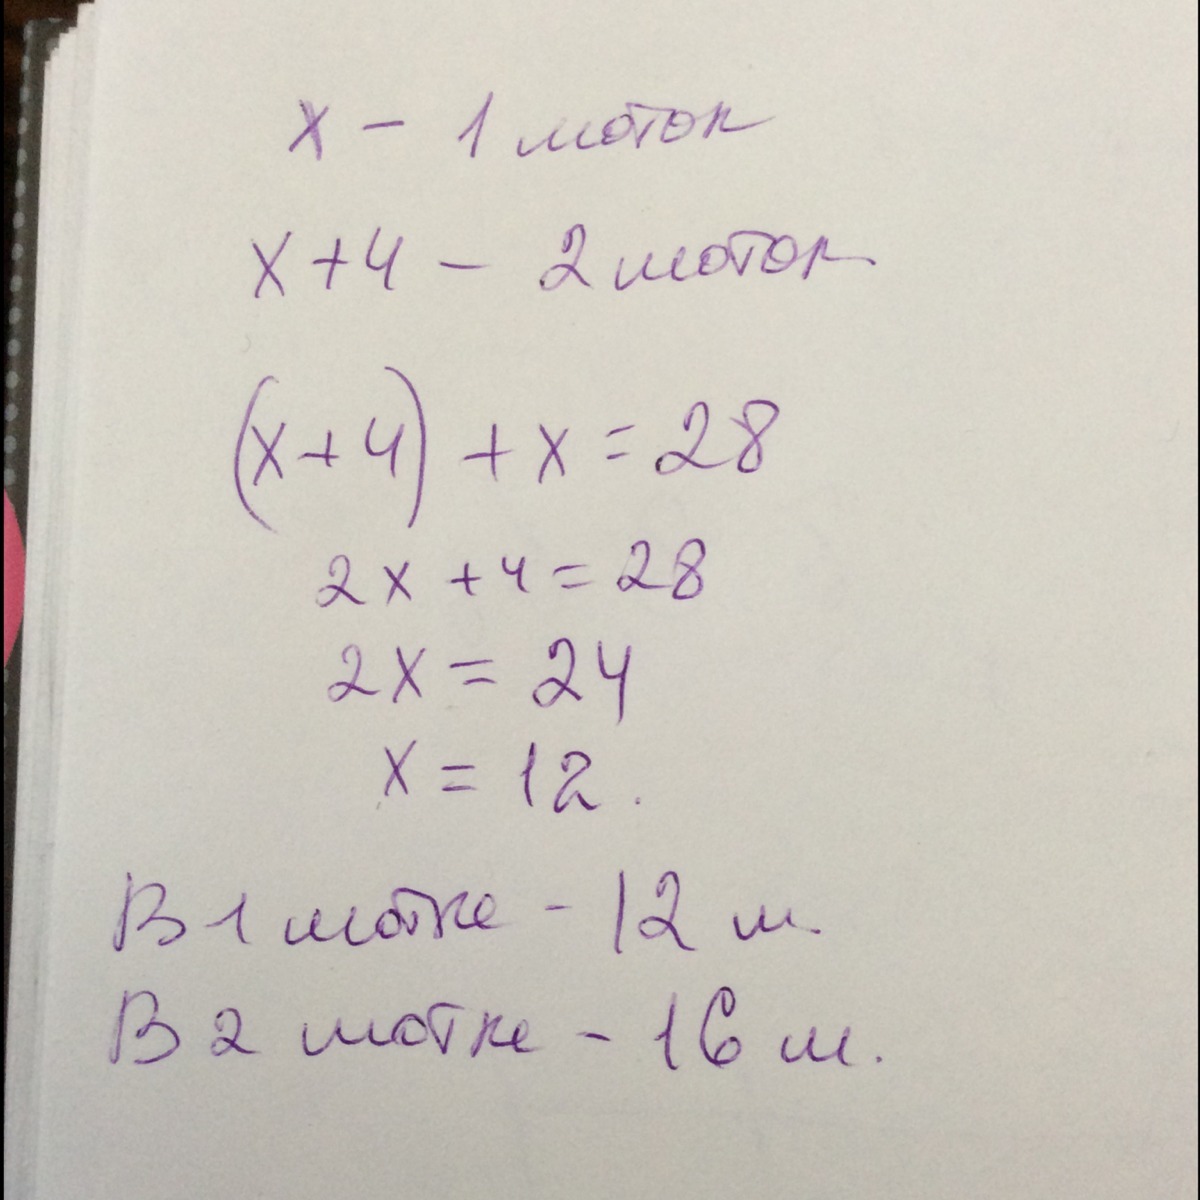 x - 1 моток
x+4 - 2 моток
(x+4) + x = 28
2x +4 = 28
2x = 24
x = 12.
В 1 мотке - 12 м.
В 2 мотке - 16 м.